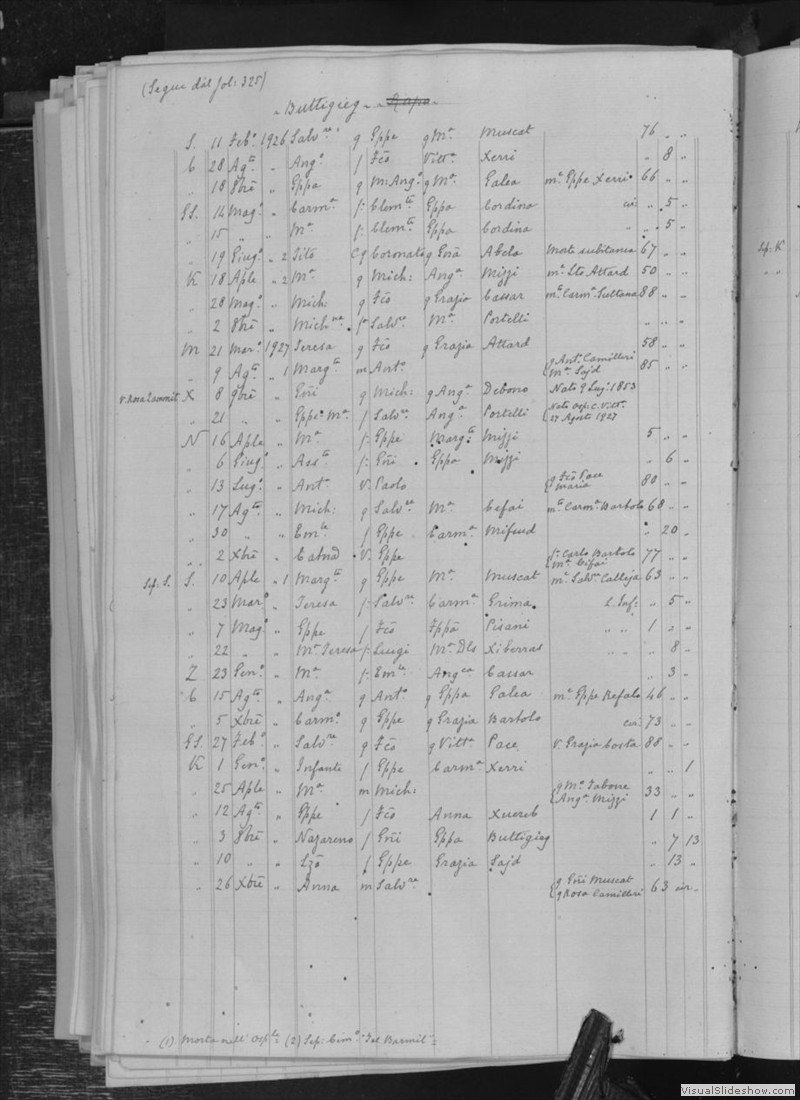 (Segue dal fol: 325)
„ Buttigieg „
S. 11 Feb° 1926 Salv.re g Eppe g Mª Muscat 76 „ „
G 28 Ag.to „ Ang° f Fco Vittª Xerri „ 8 „
„ 18 8bre „ Eppa g M: Ang° g Mª Galea mª Eppe Xerri 66 „ „
GS. 14 Mag° „ Carmª f: Clem.te Eppa Cordina cir „ 5 „
„ 15 „ „ Mª f: Clem.te Eppa Cordina „ „ 5 „
„ 19 Giug° „ 2 Tito Cg Coronato g Abela Morte subitanea 67 „ „
K 18 Aple „ 2 Mª g Mich: Angª Mizzi mª Attard 50 „ „
„ 28 Mag° „ Mich: g Fco g Grazia Cassar mº Carmª Sultana 88 „ „
„ 2 8bre „ f Salv.re Mª Portelli „ „ „
M 21 Mar° 1927 Teresa g Fco g Grazia Attard 58 „ „
„ 9 Ag.to „ 1 Marg.ta m Ant° g Ant° Camilleri Mª Sajd 85 „ „
v. Rosa Zammit X 8 9bre „ Gni g Mich: g Angª Debono Nato 9 Lug: 1853
„ 21 „ „ Eppe Mª f Salv.re Angª Portelli Nato Osp: C. Vittª 27 Agosto 1927
N 16 Aple „ Mª f: Eppe Marg.ta Mizzi 5 „ „
„ 6 Giug° „ Ass.ta f: Gni Eppa Mizzi „ 6 „
„ 13 Lug° „ Antª V. Paolo g Fco Pace Maria 80 „ „
„ 17 Ag.to „ Mich: g Salv.re Mª Cefai mº Carmª Bartolo 68 „ „
„ 30 „ „ f Eppe Carmª Mifsud „ 20 „
„ 2 Xbre „ V. Eppe f: Carlo Bartolo Mª Cefai 77 „ „
Sep. S. S. 10 Aple „ 1 Marg.ta g Eppe Mª Muscat mª Salv.re Calleja 63 „ „
„ 23 Mar° „ Teresa f: Salv.re Carmª Grima L. Inf: „ 5 „
„ 7 Mag° „ Eppe f Fco Pisani „ „ 1 „ „
„ 22 „ „ Mª Teresa f: Luigi Mª Dls Xiberras „ „ 8 „
Z 23 Gen° „ Mª f: Em.le Cassar „ 3 „
G 15 Ag.to „ Angª g Ant° g Eppa Galea mª Eppe Refalo 46 „ „
„ 5 Xbre „ Carm° g Eppe g Grazia Bartolo cir: 73 „ „
GS. 27 Feb° „ Salv.re g Fco g Vittª Pace v. Grazia Costa 88 „ „
K 1 Gen° „ Infante f Eppe Carmª Xerri „ „ 1
„ 25 Aple „ Mª m Mich: g Mª Tabone Angª Mizzi 33 „ „
„ 12 Ag.to „ Eppe f Fco Anna Xuereb 1 1 „
„ 3 8bre „ Nazareno f Gni Eppa Buttigieg „ 7 13
„ 10 „ „ f Eppe Grazia Sajd „ 13 „
„ 26 Xbre „ Anna m Salv.re g Gni Muscat g Rosa Camilleri 63 cir „
(1) Morta nell' Osp.le (2) Sep: Cim°
Sep: K
VisualSlideshow.com